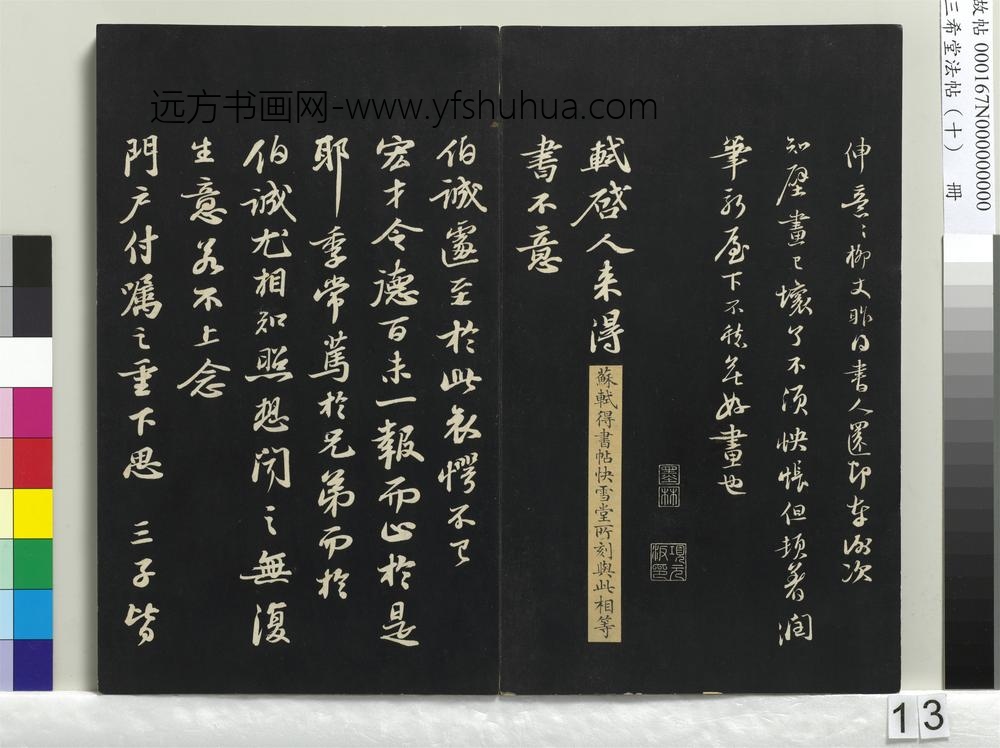 远方书画网-www.yfshuhua.com
故帖 000167N000000000
三希堂法帖（十） 册
伸意柳丈昨得書人還即奉謝次
知壁畫已壞了不須怏悵但頓著潤
筆新屋下不愁無好畫也
墨林
項元汴印
軾啓人来得
蘇軾得書帖快雪堂所刻與此相等
書不意
伯誠遽至於此哀愕不已
宏才令德百未一報而止於是
耶 季常篤於兄弟而於
伯誠尤相知照想聞之無復
生意若不上念
門户付囑之重下思 三子皆
13